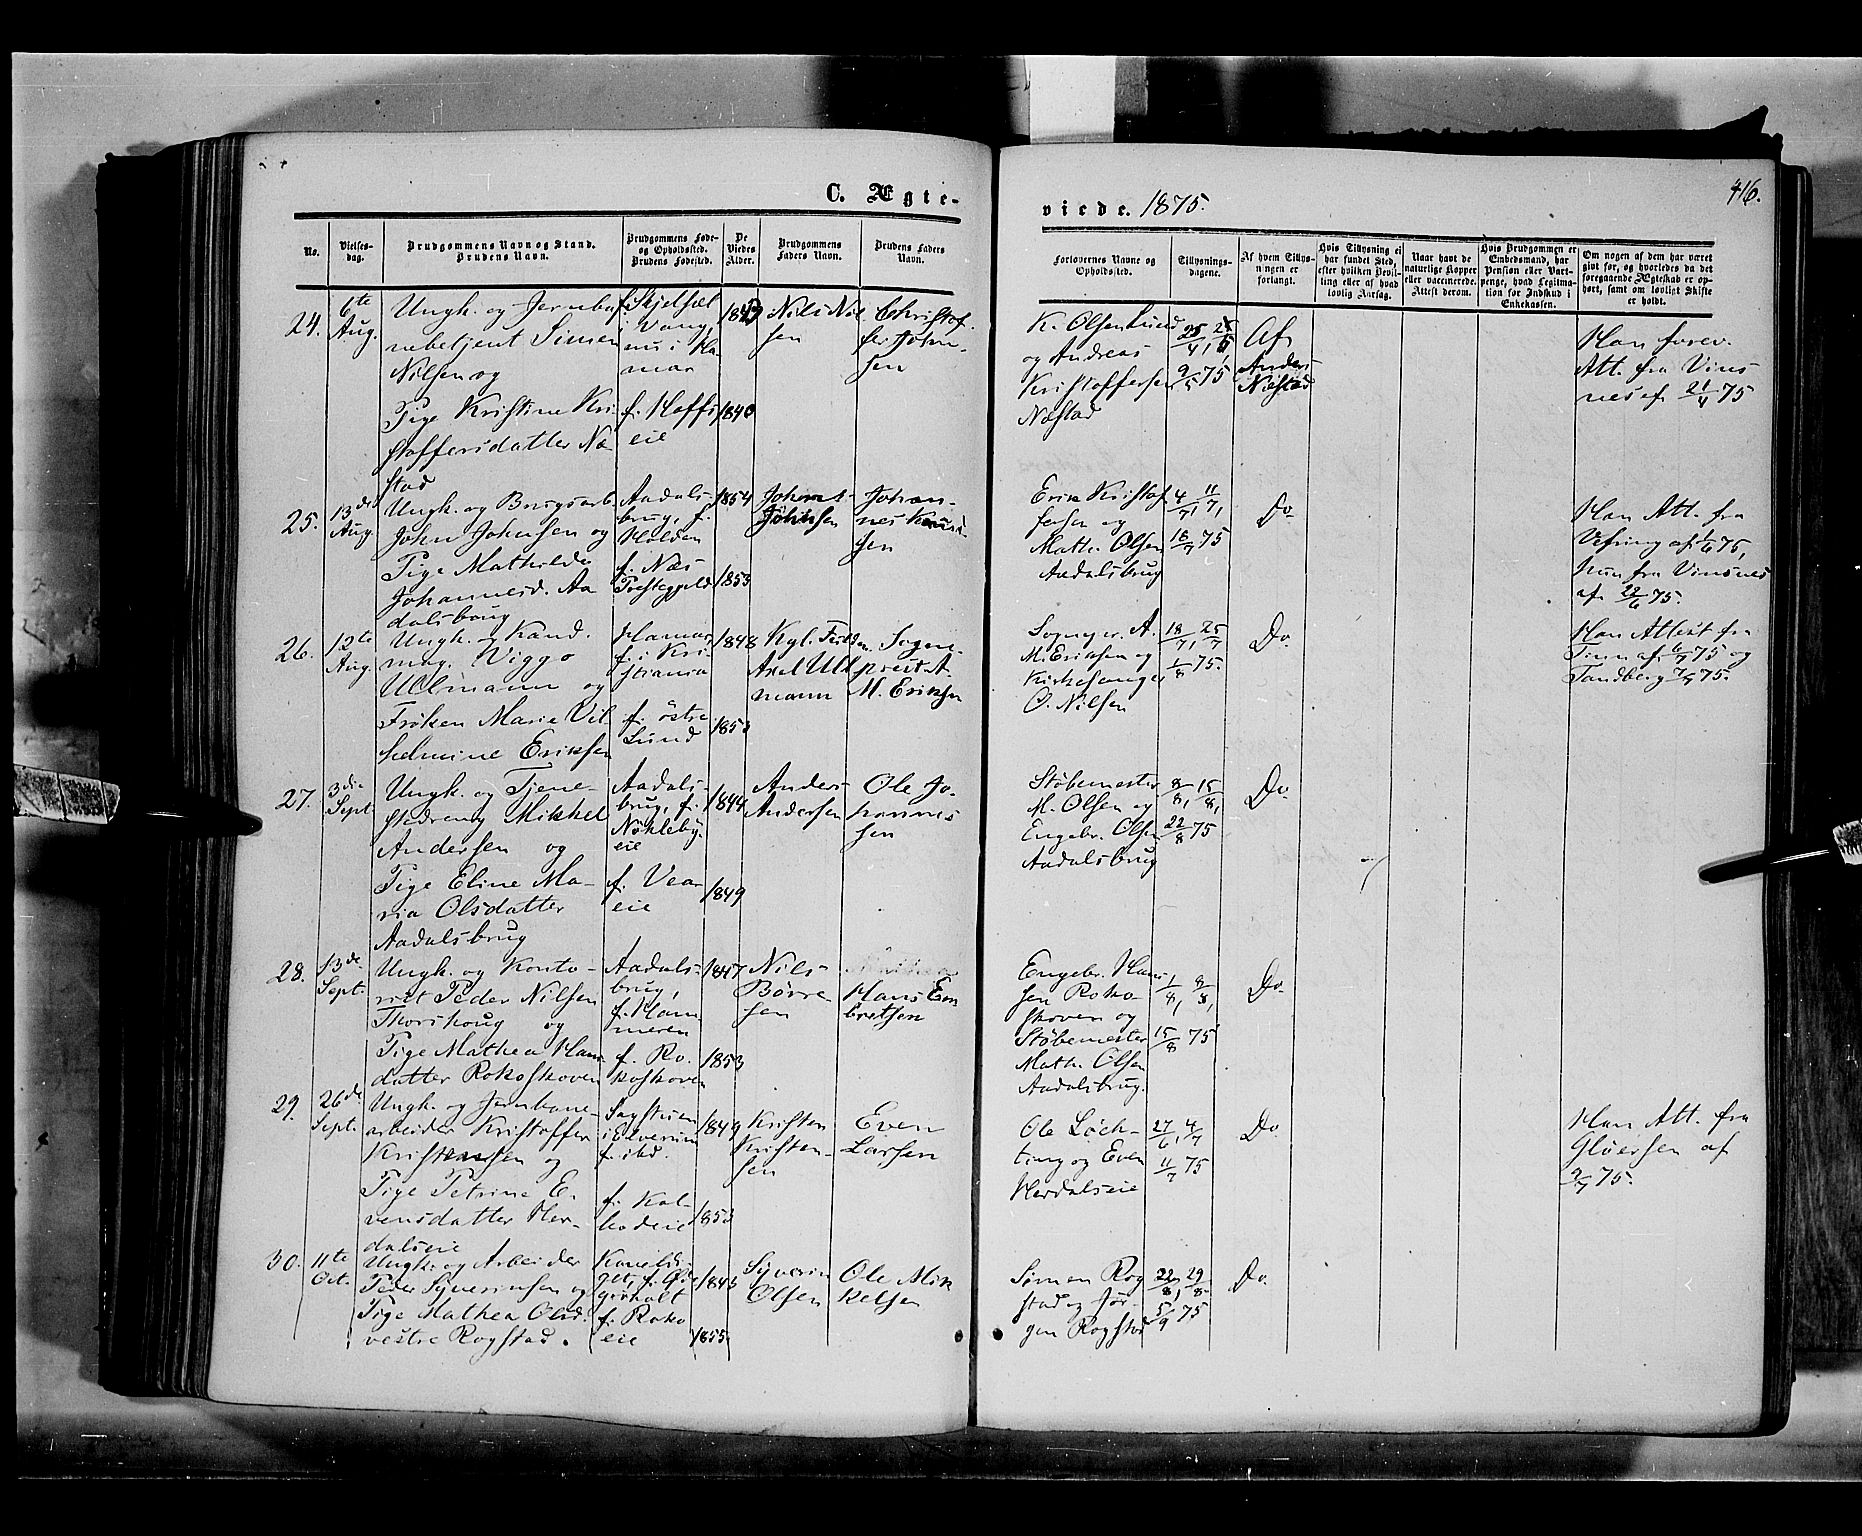 C. Ægte-
viede. 1875.
416.
No.
Vielses-
dag.
Brudgommens Navn og Stand.
Brudens Navn.
Brudgommens Føde-
og Opholdssted.
Brudens Fødested.
De
Viedes
Alder.
Brudgommens
Faders Navn.
Brudens Faders
Navn.
Forlovernes Navne og
Opholdssted.
Tillysnings-
dagene.
Af hvem Tillys-
ningen er
forlangt.
Hvis Tillysning ei
har fundet Sted,
efter hvilken Bevil-
ling eller af hvad
lovlig Aarsag.
Naar havt de
naturlige Kopper
eller vaccinerede.
Attest derom.
Hvis Brudgommen er
Embedsmand, har
Pension eller Vart-
penge, hvad Legitima-
tion for Indskud i
Enkekassen.
Om nogen af dem har været
givt før, og hvorledes da det
foregaaende Ægteskab er op-
hørt, samt om lovligt Skifte
er holdt.
24.
6te
Aug.
Ungk. og Jernba-
nebetjent Simen
Nilsen og
Tige Kristine Kri-
stoffersdatter Næ
stad
f. Skjelsæl
i Vang,
nu i Ha
mar
f. Hoffs
eie
1840
Nils Nil
sen
Christof-
fer John-
sen
K. Olsen Lund
og Andreas
Kristoffersen
Næstad
25/4,
9/5 75
Af
Anders
Næstad
Han forev.
Att. fra Vins
nes af 21/4 75
25.
13de
Aug.
Ungk. og Brugsarb.
John Johnsen og
Tige Mathilde
Johannesd. Aa
dalsbrug
Aadals-
brug, f.
Holden
f. Næs
Præstegjeld
1854
1853
Johnsen
Johan-
nes
sen
Erik Kristof
fersen og
Math. Olsen
Aadalsbrug
4/7, 11/7,
18/7 75
Do.
Han Att. fra
Vefring af 1/6 75,
hun fra Vinsnes
af 22/6 75.
26.
12te
Aug.
Ungk. og Kand.
mag. Viggo
Ullmann og
Frøken Marie Vil
helmine Eriksen
Hamar,
f. i Kri-
stiania
f. östre
Lund
1848
1853
Kgl. Fuldm.
Axel Ull
mann
Sogne-
prest A.
M. Eriksen
Sognepr. A.
M. Eriksen og
Kirkesanger
O. Nilsen
18/7, 25/7
1/8 75.
Do.
Han Attest fra
Tinn af 6/7 75 og
Tandberg 7/7 75.
27.
3die
Sept.
Ungk. og Tjene-
stedreng Mikkel
Andersen og
Tige Eline Ma-
ria Olsdatter
Aadalsbrug
Aadals-
brug, f.
Nökleby-
eie
f. Vea-
eie
1844
1849
Anders
Andersen
Ole Jo-
hannes
sen
Støbemester
M. Olsen og
Engebr. Olsen
Aadalsbrug
8/8, 15/8,
22/8 75
Do.
28.
13de
Sept.
Ungk. og Konto-
rist Peder Nilsen
Thorshoug og
Tige Mathea Hans
datter Rokoskoven
Aadals-
brug,
f. Ham
meren
f. Ro.
koskoven
1847
1853
Nils
Börre
sen
Hans Em
bretsen
Engebr. Han
sen Roko-
skoven og
Støbemester
Math. Olsen
Aadalsbrug.
1/8, 8/8,
15/8 75
Do.
29.
26de
Sept.
Ungk. og Jernbane-
arbeider Kristoffer
Kristensen og
Tige Petrine E-
vensdatter Her-
dalseie
i Elverum
f. ibd.
f. Kol-
1849
1853
Kristen
Kristen-
sen
Even
Larsen
Ole Løch-
ting og Even
Herdalseie
27/6, 4/7
11/7 75
Do.
Han Att. fra
Gløersen af
9/7 75.
30.
11te
Oct.
Ungk. og Arbeider
Peder Syverinsen og
Tige Mathea Olsd.
vestre Rogstad.
f. Roko
eie
1845
1855
Syverin
Olsen
Ole Mik
kelsen
Simen Rog
stad og Jør-
gen Rogstad
22/8, 29/8
5/9 75
Do.